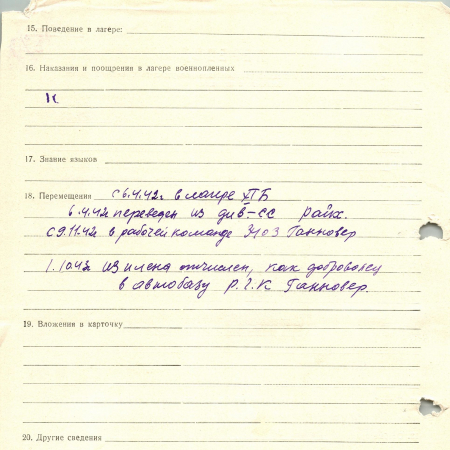 15. Поведение в лагере:
16. Наказания и поощрения в лагере военнопленных
17. Знание языков
18. Перемещения с 6.4.42г в лагре XIБ
6.4.42 переведен из див-СС Райх.
с 9.11.42 в рабочей команде 3103 Ганновер
1.10.43г из плена отчислен, как доброволец
в автобазу Р.Г.К Ганновер.
19. Вложения в карточку
20. Другие сведения